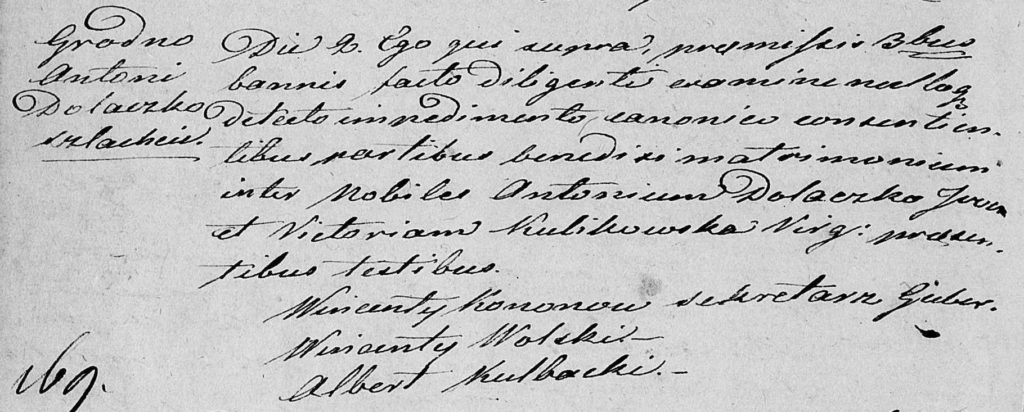 Grodno
Antoni
Dolaczko
szlachcic.
Die 2. Ego qui supra, præmissis 3bus
bannis facto diligenti examine nulloq
detecto impedimento, canonico consentien-
tibus partibus benedixi matrimonium
inter Nobiles Antonium Dolaczko Juven
et Victoriam Kulikowska Virg: præsen-
tibus testibus.
Wincenty Kononow sekretarz Guber.
Wincenty Wolski.-
Albert Kulbacki.-